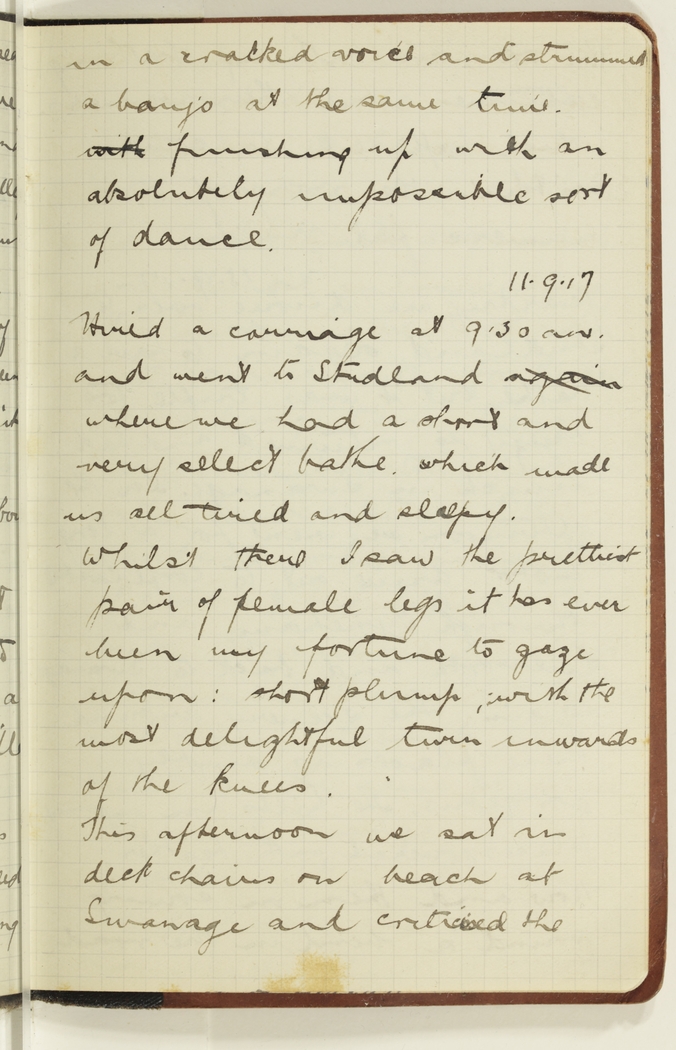 in a cracked voice and strummed
a banjo at the same time.
with finishing up with an
absolutely impossible sort
of dance.
11.9.17
Hired a carriage at 9.30 am.
and went to Studland again
where we had a short and
very select bathe. which made
us all tired and sleepy.
Whilst there I saw the prettiest
pair of female legs it has ever
been my fortune to gaze
upon: short plump, with the
most delightful turn inwards
of the knees.
This afternoon we sat in
deck chairs on beach at
Swanage and criticised the